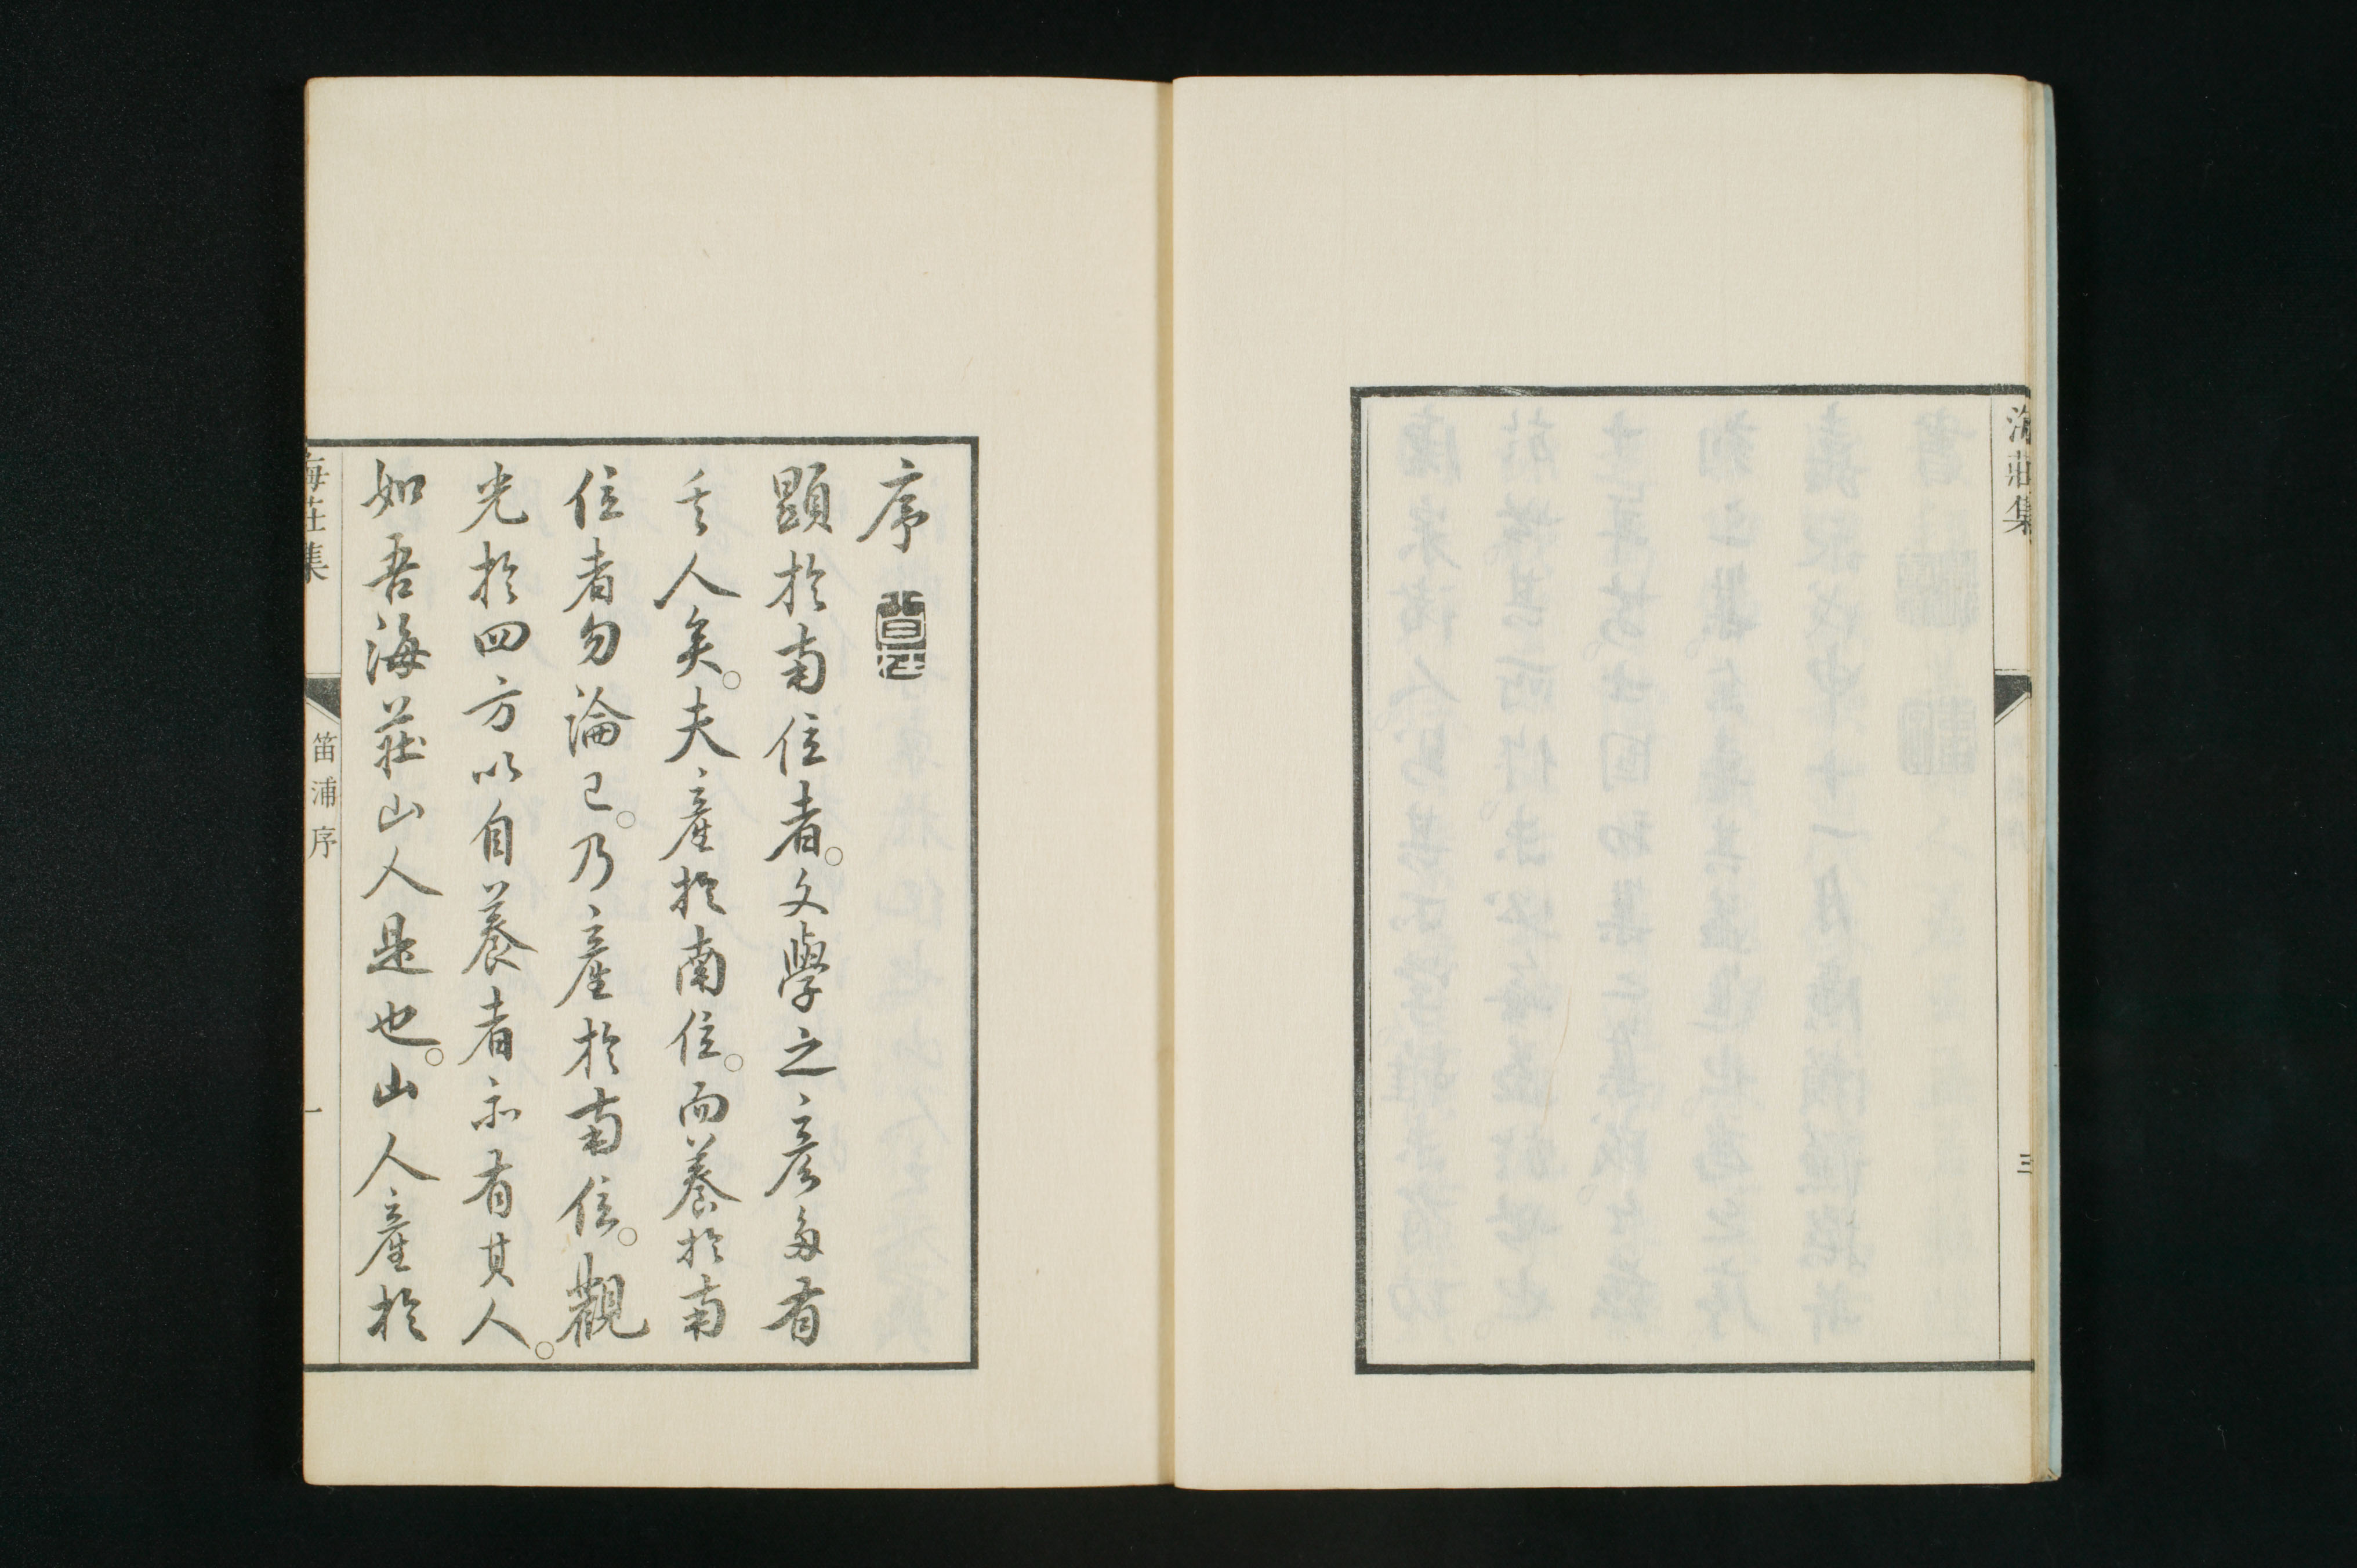 海莊集
三
序
顕於南信者。文學之彦多有
其人矣。夫産於南信。而養於南
信者勿論已。乃産於南信。觀
光於四方以自養者亦有其人。
如吾海莊山人是也。山人産於
海莊集
笛浦序
一